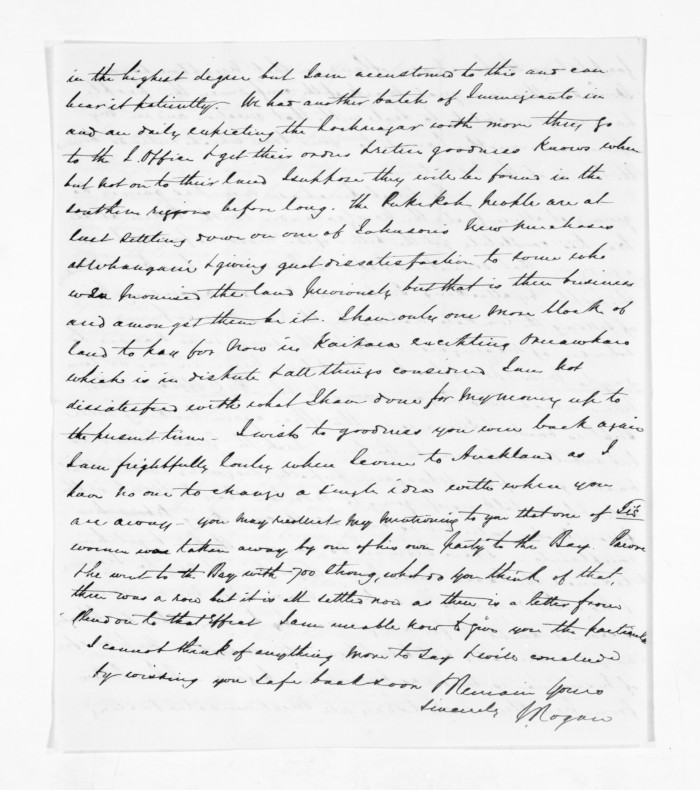 in the highest degree but I am accustomed to this and can
bear it patiently - We had another batch of Immigrants in
and are daily expecting the Lochnagar with more they go
to the L. Office & get their orders & then goodness knows when
but not on to their land I suppose they will be found in the
southern regions before long. The Pukekoh people are at
last settling down on one of Johnson's new purchases
at Whangarei & giving great dissatisfaction to some who
were promised the land previously but that is their business
and amongst them be it. I have only one more block of
land to pay for now in Kaipara excepting Omeawharo
which is in dispute & all things considered I am not
dissatisfied with what I have done for my money up to
the present time - I wish to goodness you were back again
I am frightfully lonely when I come to Auckland as I
have no one to change a single idea with when you
are away - you may recollect my mentioning to you that one of
women was taken away by one of his own party to the Bay.
& he went to the Bay with 700 strong, what do you think of that,
there was a row but it is all settled now as there is a letter from
Clendon to that effect I am unable now to give you the particulars
I cannot think of anything more to say & will conclude
by wishing you safe back soon Remain Yours
Sincerely J Rogan